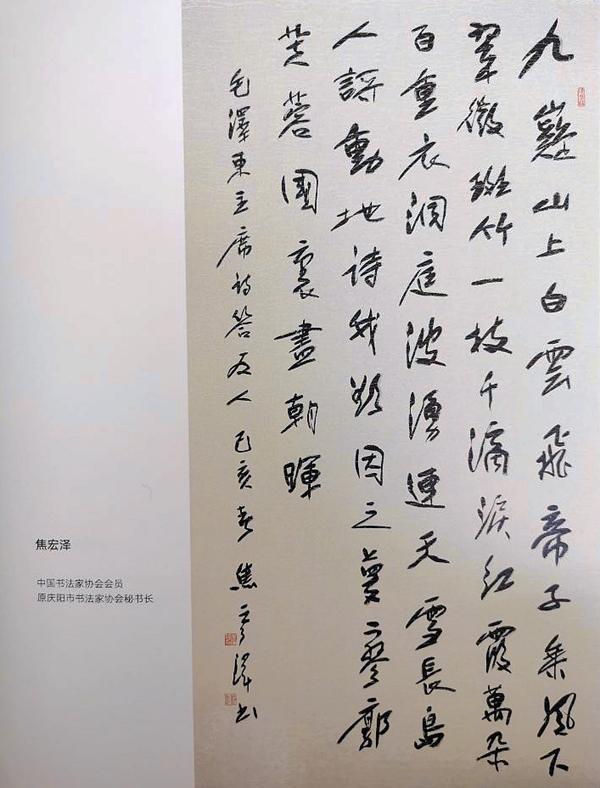 九嶷山上白雲飛帝子乘風下
翠微斑竹一枝千滴淚紅霞萬朵
百重衣洞庭波湧連天雪長島
人謌動地詩我欲因之夢寥廓
芙蓉國裏盡朝暉
毛澤東主席詩答友人己亥春焦宏澤书
焦宏泽
中国书法家协会会员
原庆阳市书法家协会秘书长